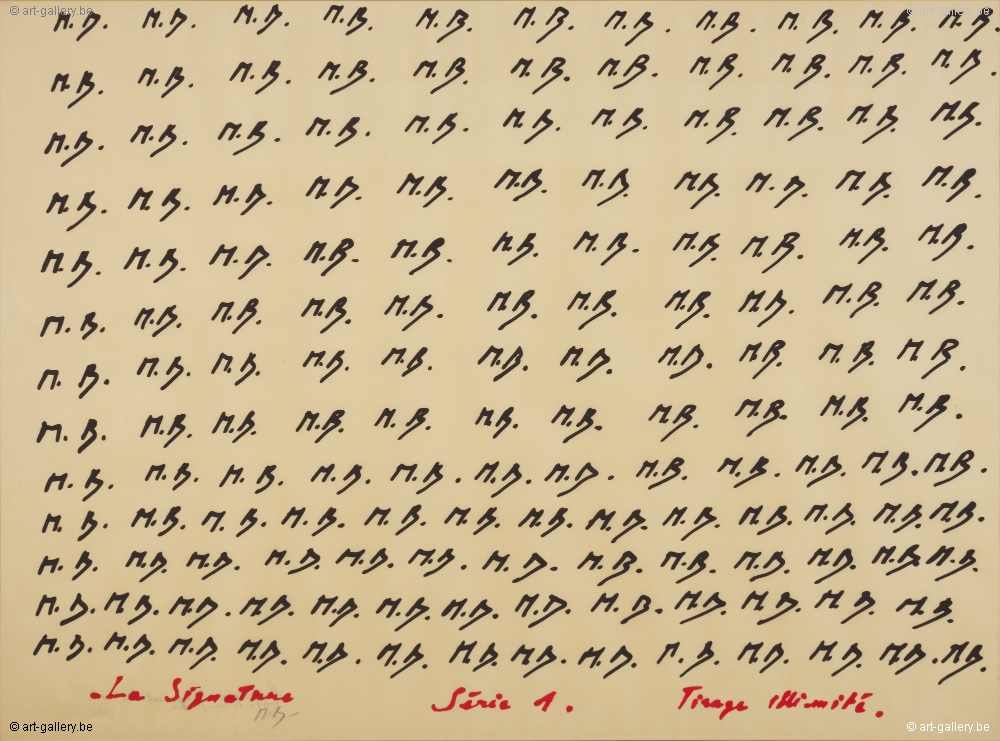 © art-gallery.be © art-gallery.be
M.B. M.B. M.B. M.B. M.B. M.B. M.B. M.B. M.B. M.B. M.B.
M.B. M.B. M.B. M.B. M.B. M.B. M.B. M.B. M.B. M.B. M.B.
M.B. M.B. M.B. M.B. M.B. M.B. M.B. M.B. M.B. M.B. M.B.
M.B. M.B. M.B. M.B. M.B. M.B. M.B. M.B. M.B. M.B. M.B.
M.B. M.B. M.B. M.B. M.B. M.B. M.B. M.B. M.B. M.B. M.B.
M.B. M.B. M.B. M.B. M.B. M.B. M.B. M.B. M.B. M.B. M.B.
M.B. M.B. M.B. M.B. M.B. M.B. M.B. M.B. M.B. M.B. M.B.
M.B. M.B. M.B. M.B. M.B. M.B. M.B. M.B. M.B. M.B. M.B.
M.B. M.B. M.B. M.B. M.B. M.B. M.B. M.B. M.B. M.B. M.B. M.B.
M.B. M.B. M.B. M.B. M.B. M.B. M.B. M.B. M.B. M.B. M.B. M.B. M.B.
M.B. M.B. M.B. M.B. M.B. M.B. M.B. M.B. M.B. M.B. M.B. M.B. M.B.
M.B. M.B. M.B. M.B. M.B. M.B. M.B. M.B. M.B. M.B. M.B. M.B. M.B.
M.B. M.B. M.B. M.B. M.B. M.B. M.B. M.B. M.B. M.B. M.B. M.B. M.B. M.B.
La Signature Série 1. Tirage illimité.
M.B.
© art-gallery.be © art-gallery.be